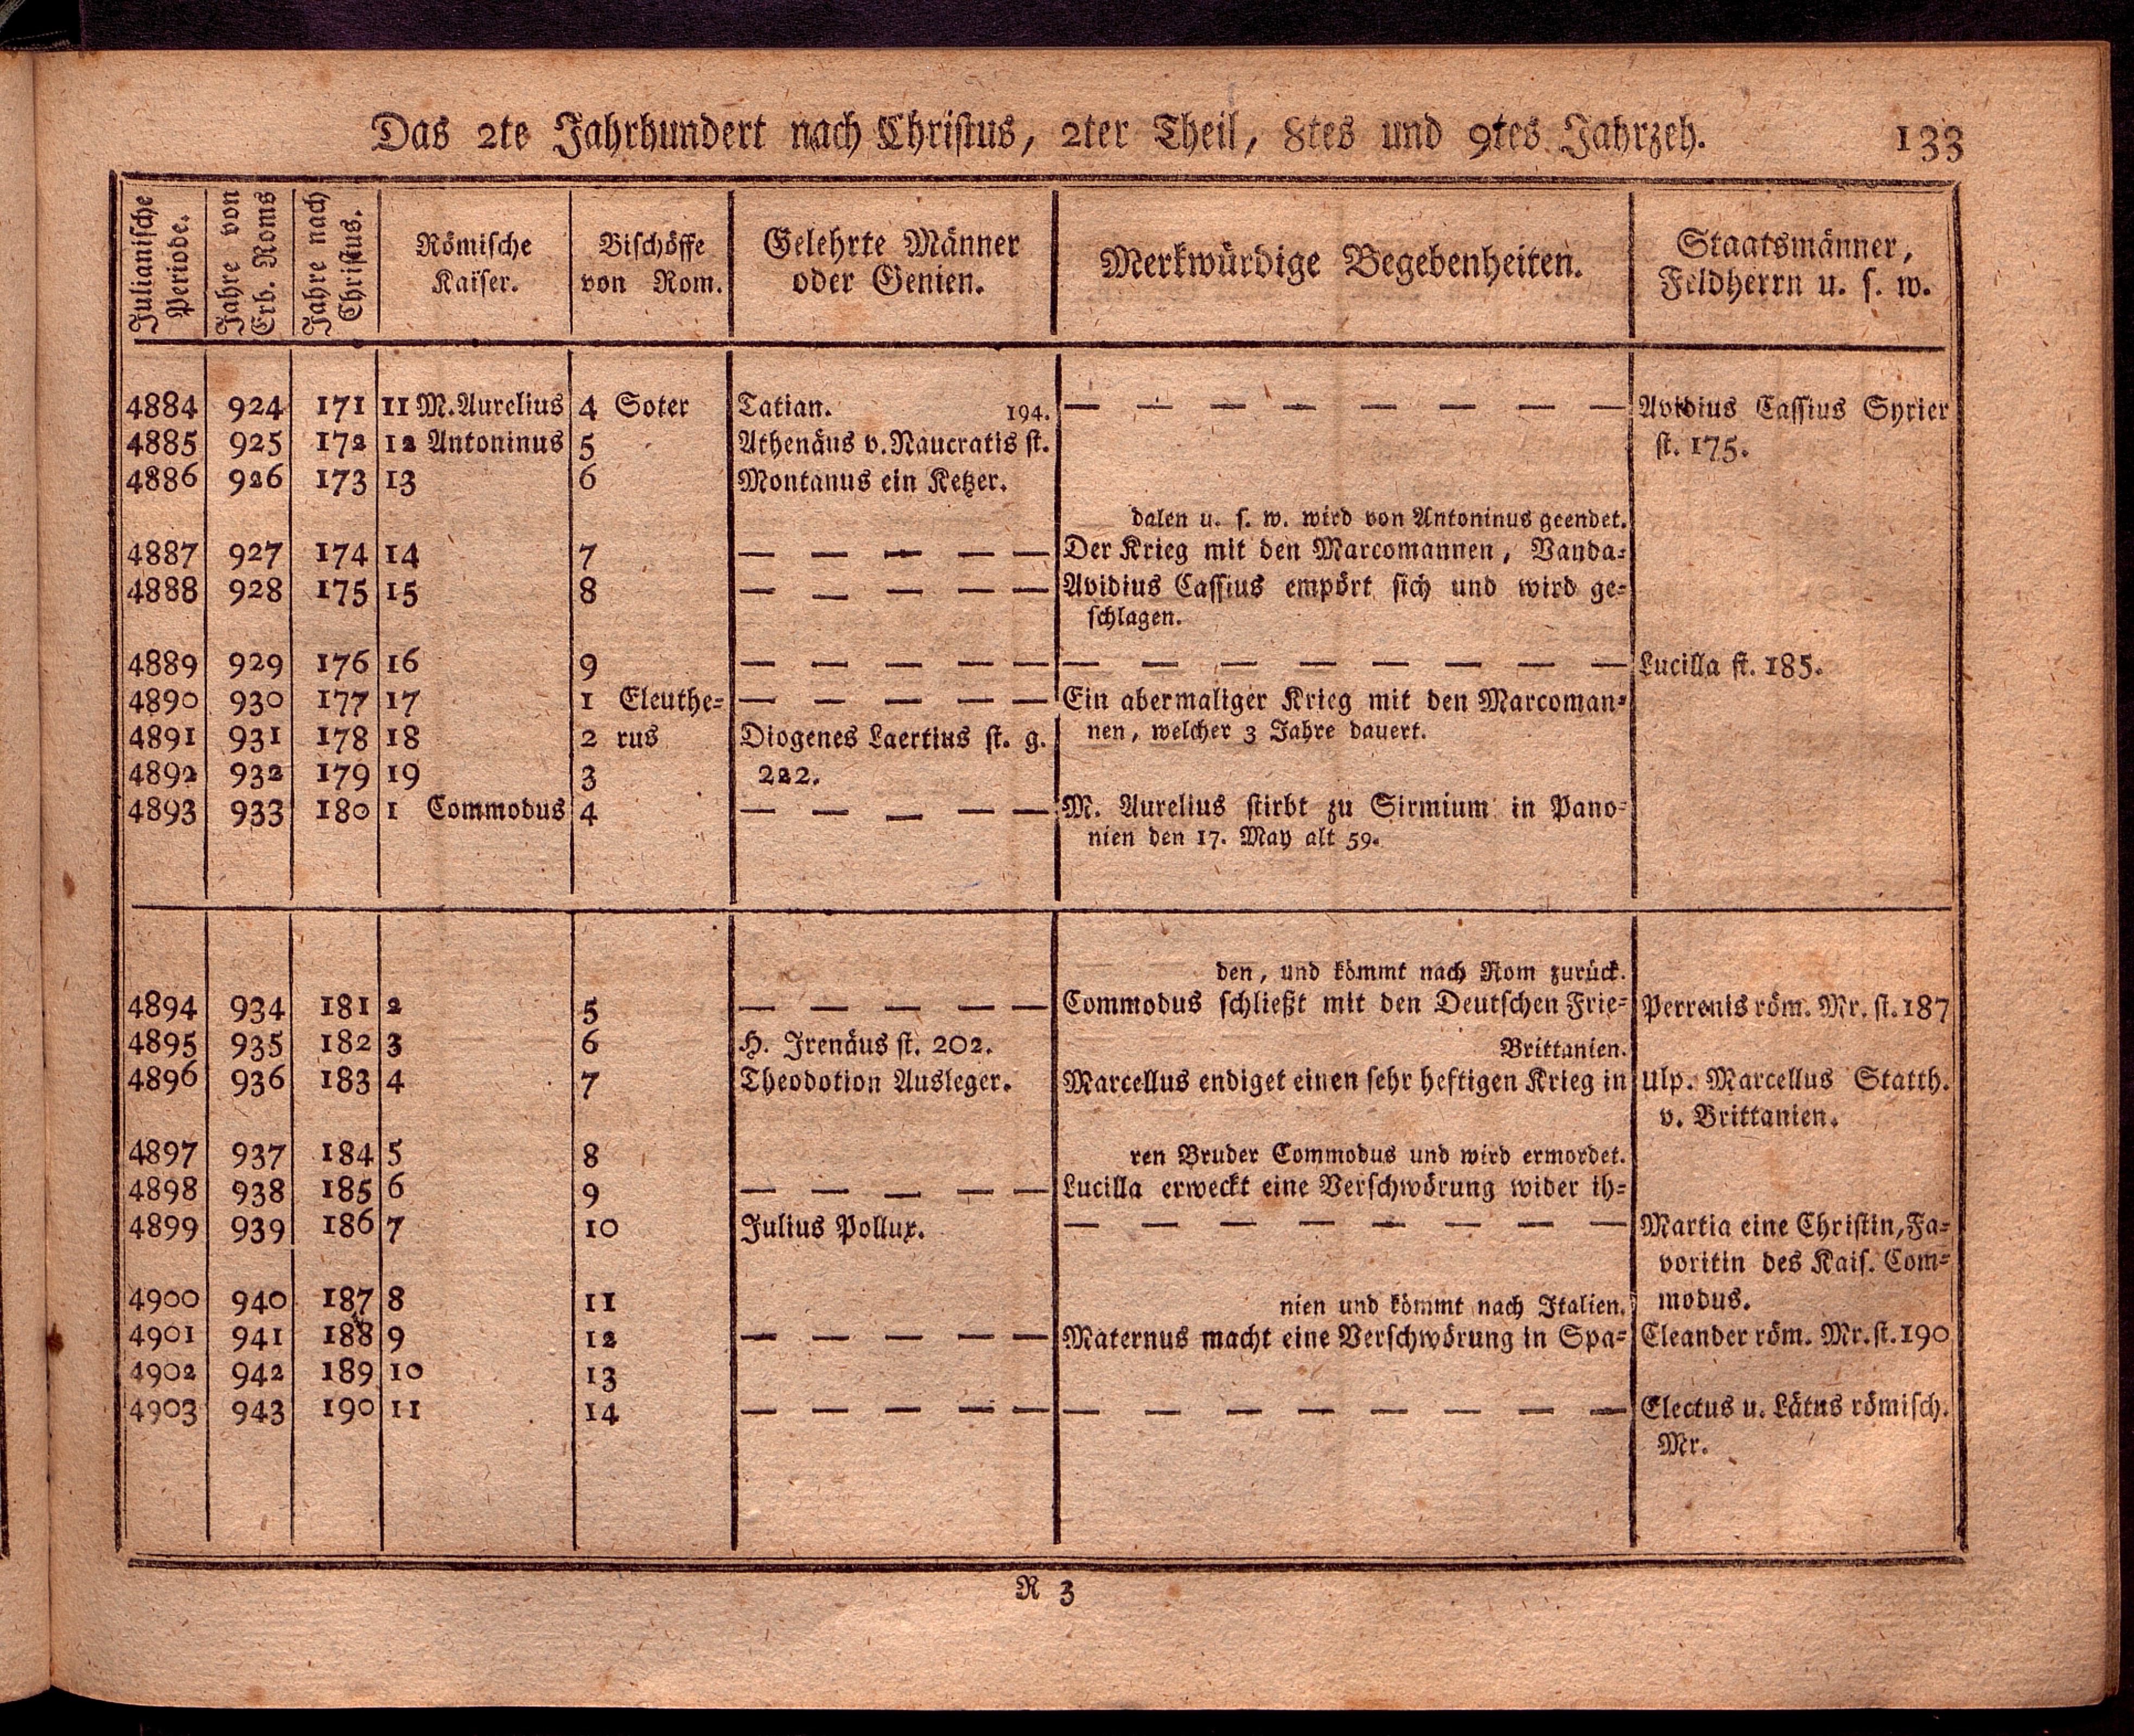 Das 2te Jahrhundert nach Christus, 2ter Theil, 8tes und 9tes Jahrzeh. 133
Julianische Periode. Jahre von Erb. Roms Jahre nach Christus. Römische Kaiser. Bischöffe von Rom. Gelehrte Männer oder Genien. Merkwürdige Begebenheiten. Staatsmänner, Feldherrn u. s. w.
4884 924 171 11 M. Aurelius 4 Soter Tatian. 194. — — — — — — — — Avidius Cassius Syrier
4885 925 172 12 Antoninus 5 Athenäus v. Naucratis st. st. 175.
4886 926 173 13 6 Montanus ein Ketzer.
dalen u. s. w. wird von Antoninus geendet.
4887 927 174 14 7 — — — — — Der Krieg mit den Marcomannen, Vanda-
4888 928 175 15 8 — — — — — Avidius Cassius empört sich und wird ge-
schlagen.
4889 929 176 16 9 — — — — — — — — — — — — — Lucilla st. 185.
4890 930 177 17 1 Eleuthe- — — — — — Ein abermaliger Krieg mit den Marcoman-
4891 931 178 18 2 rus Diogenes Laertius st. g. nen, welcher 3 Jahre dauert.
4892 932 179 19 3 222.
4893 933 180 1 Commodus 4 — — — — — M. Aurelius stirbt zu Sirmium in Pano-
nien den 17. May alt 59.
den, und kömmt nach Rom zurück.
4894 934 181 2 5 — — — — — Commodus schließt mit den Deutschen Frie- Perrenis röm. Mr. st. 187
4895 935 182 3 6 H. Irenäus st. 202. Brittanien.
4896 936 183 4 7 Theodotion Ausleger. Marcellus endiget einen sehr heftigen Krieg in Ulp. Marcellus Statth.
v. Brittanien.
4897 937 184 5 8 ren Bruder Commodus und wird ermordet.
4898 938 185 6 9 — — — — — Lucilla erweckt eine Verschwörung wider ih-
4899 939 186 7 10 Julius Pollux. — — — — — — — — Martia eine Christin, Fa-
voritin des Kais. Com-
4900 940 187 8 11 nien und kömmt nach Italien. modus.
4901 941 188 9 12 — — — — — Maternus macht eine Verschwörung in Spa- Cleander röm. Mr. st. 190
4902 942 189 10 13
4903 943 190 11 14 — — — — — — — — — — — — — Electus u. Lätus römisch.
Mr.
R 3